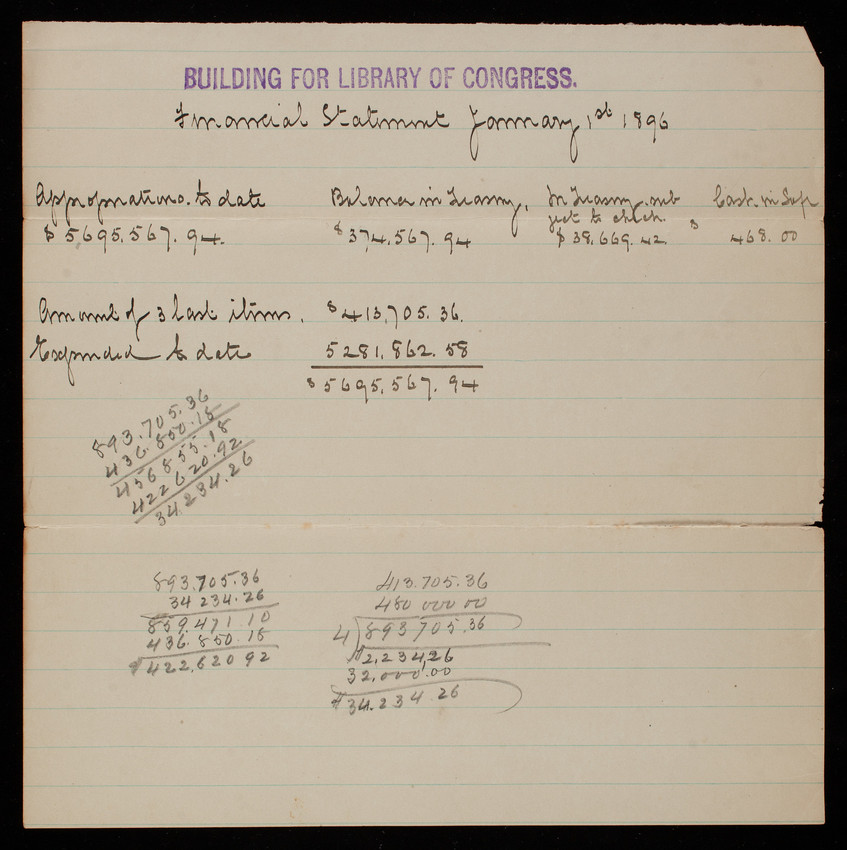 BUILDING FOR LIBRARY OF CONGRESS.
Financial Statement January 1st 1896
Appropriations to date Balance in Treasury, In Treasury sub Cash in Safe
ject to check.
$5695,567.94. $374,567.94 $38,669.42 $ 468.00
Amount of 3 last items. $413,705.36.
Expended to date 5281,862.58
$5695,567.94
893.705.36
436.850.18
456855.18
422620.92
34234.26
893.705.36
34234.26
859.471.10
436.850.18
$422,620 92
413.705.36
480 000 00
4)893705.36
$2,234,26
32,000.00
$34.234.26